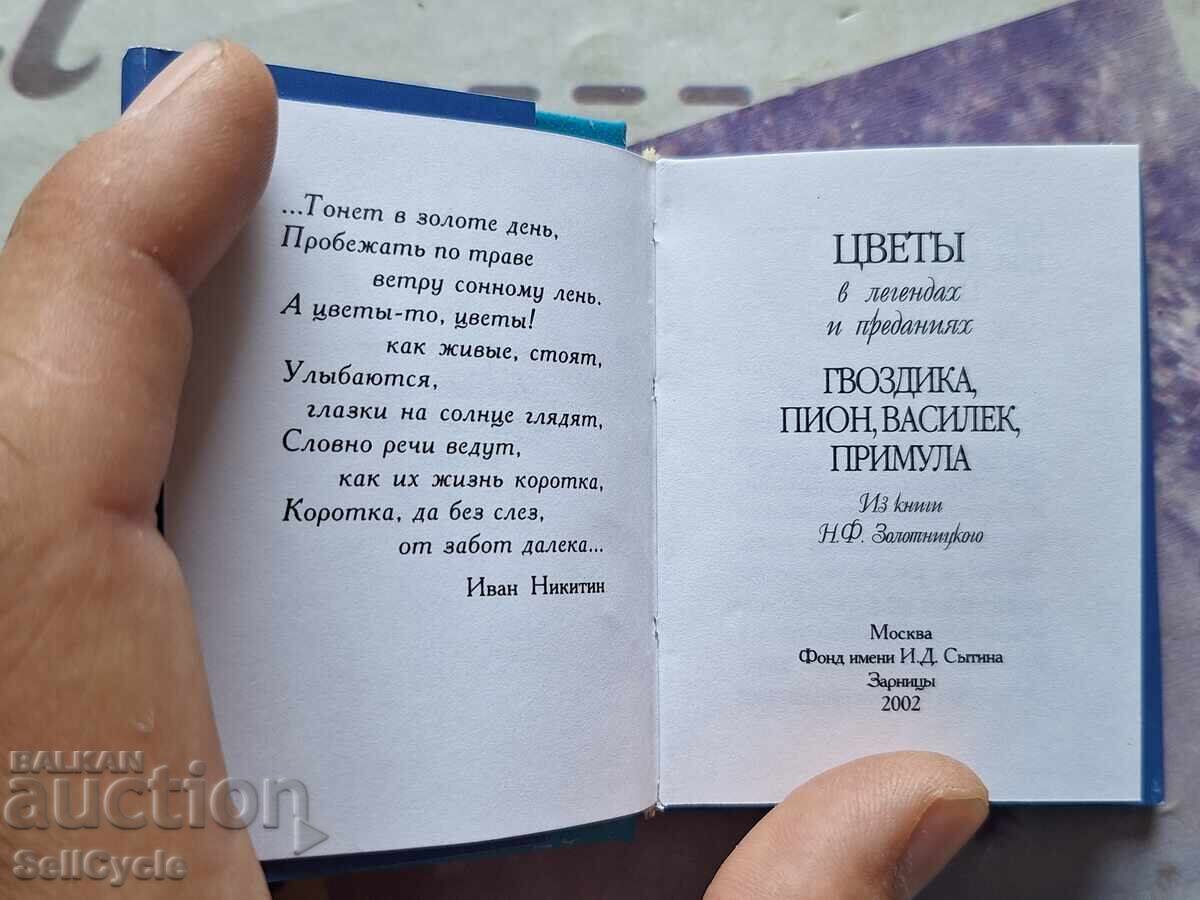 ...Тонет в золоте день,
Пробежать по траве
ветру сонному лень.
А цветы-то, цветы!
как живые, стоят,
Улыбаются,
глазки на солнце глядят,
Словно речи ведут,
как их жизнь коротка,
Коротка, да без слез,
от забот далека...
Иван Никитин
ЦВЕТЫ
в легендах
и преданиях
ГВОЗДИКА,
ПИОН, ВАСИЛЕК,
ПРИМУЛА
Из книги
Н.Ф. Золотницкого
Москва
Фонд имени И.Д. Сытина
Зарницы
2002
BALKAN
auction
SellCycle